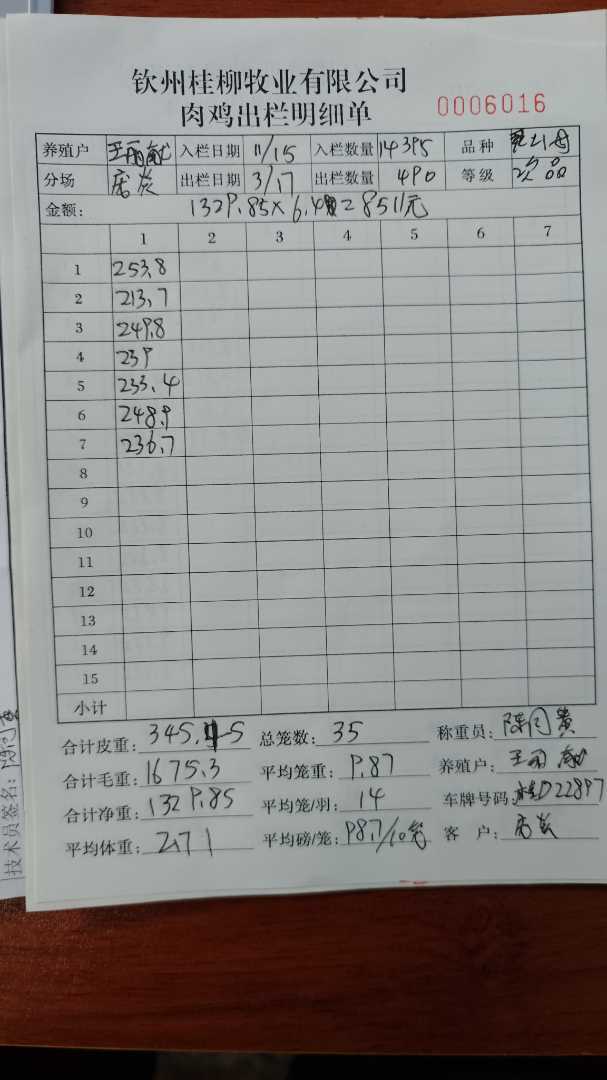 钦州桂柳牧业有限公司
肉鸡出栏明细单 0006016
养殖户 入栏日期 11/15 入栏数量 14395 品种
分场 出栏日期 3/17 出栏数量 490 等级 次品
金额: 1329.85×6.4=8511元
1 2 3 4 5 6 7
1 253.8
2 213.7
3 249.8
4 239
5 233.4
6 248.9
7 236.7
8
9
10
11
12
13
14
15
小计
合计皮重: 345.45 总笼数: 35 称重员:
合计毛重: 1675.3 平均笼重: 9.87 养殖户:
合计净重: 1329.85 平均笼/羽: 14 车牌号码: 桂D22897
平均体重: 2.71 平均磅/笼: 98.7/10笼 客户:
技术员签名: